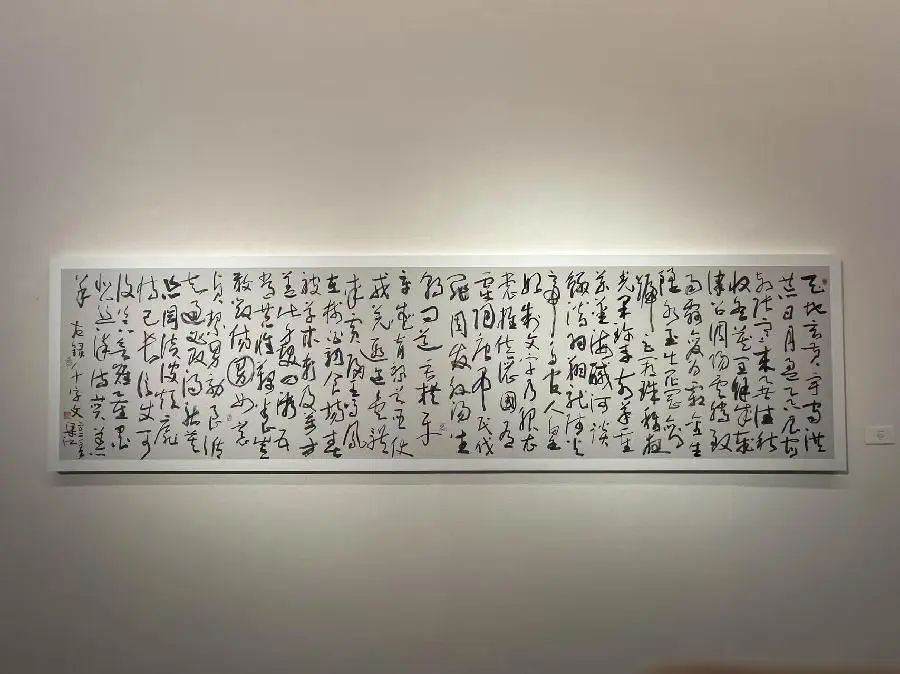 天地玄黃宇宙洪
荒日月盈昃辰宿
列張寒來暑往秋
收冬藏閏餘成歲
律呂調陽雲騰致
雨露結為霜金生
麗水玉出崑岡劍
號巨闕珠稱夜
光果珍李柰菜重
芥薑海鹹河淡
鱗潛羽翔龍師火
帝鳥官人皇
始制文字乃服衣
裳推位讓國有
虞陶唐弔民伐
罪周發殷湯坐
朝問道垂拱平
章愛育黎首臣伏
戎羌遐邇壹體
率賓歸王鳴鳳
在樹白駒食場化
被草木賴及萬方
蓋此身髮四大五
常恭惟鞠養豈
敢毀傷女慕
貞潔男效才良
知過必改得能莫
忘罔談彼短靡
恃己長信使可
覆器欲難量墨
悲絲染詩讚羔
羊 右錄千字文